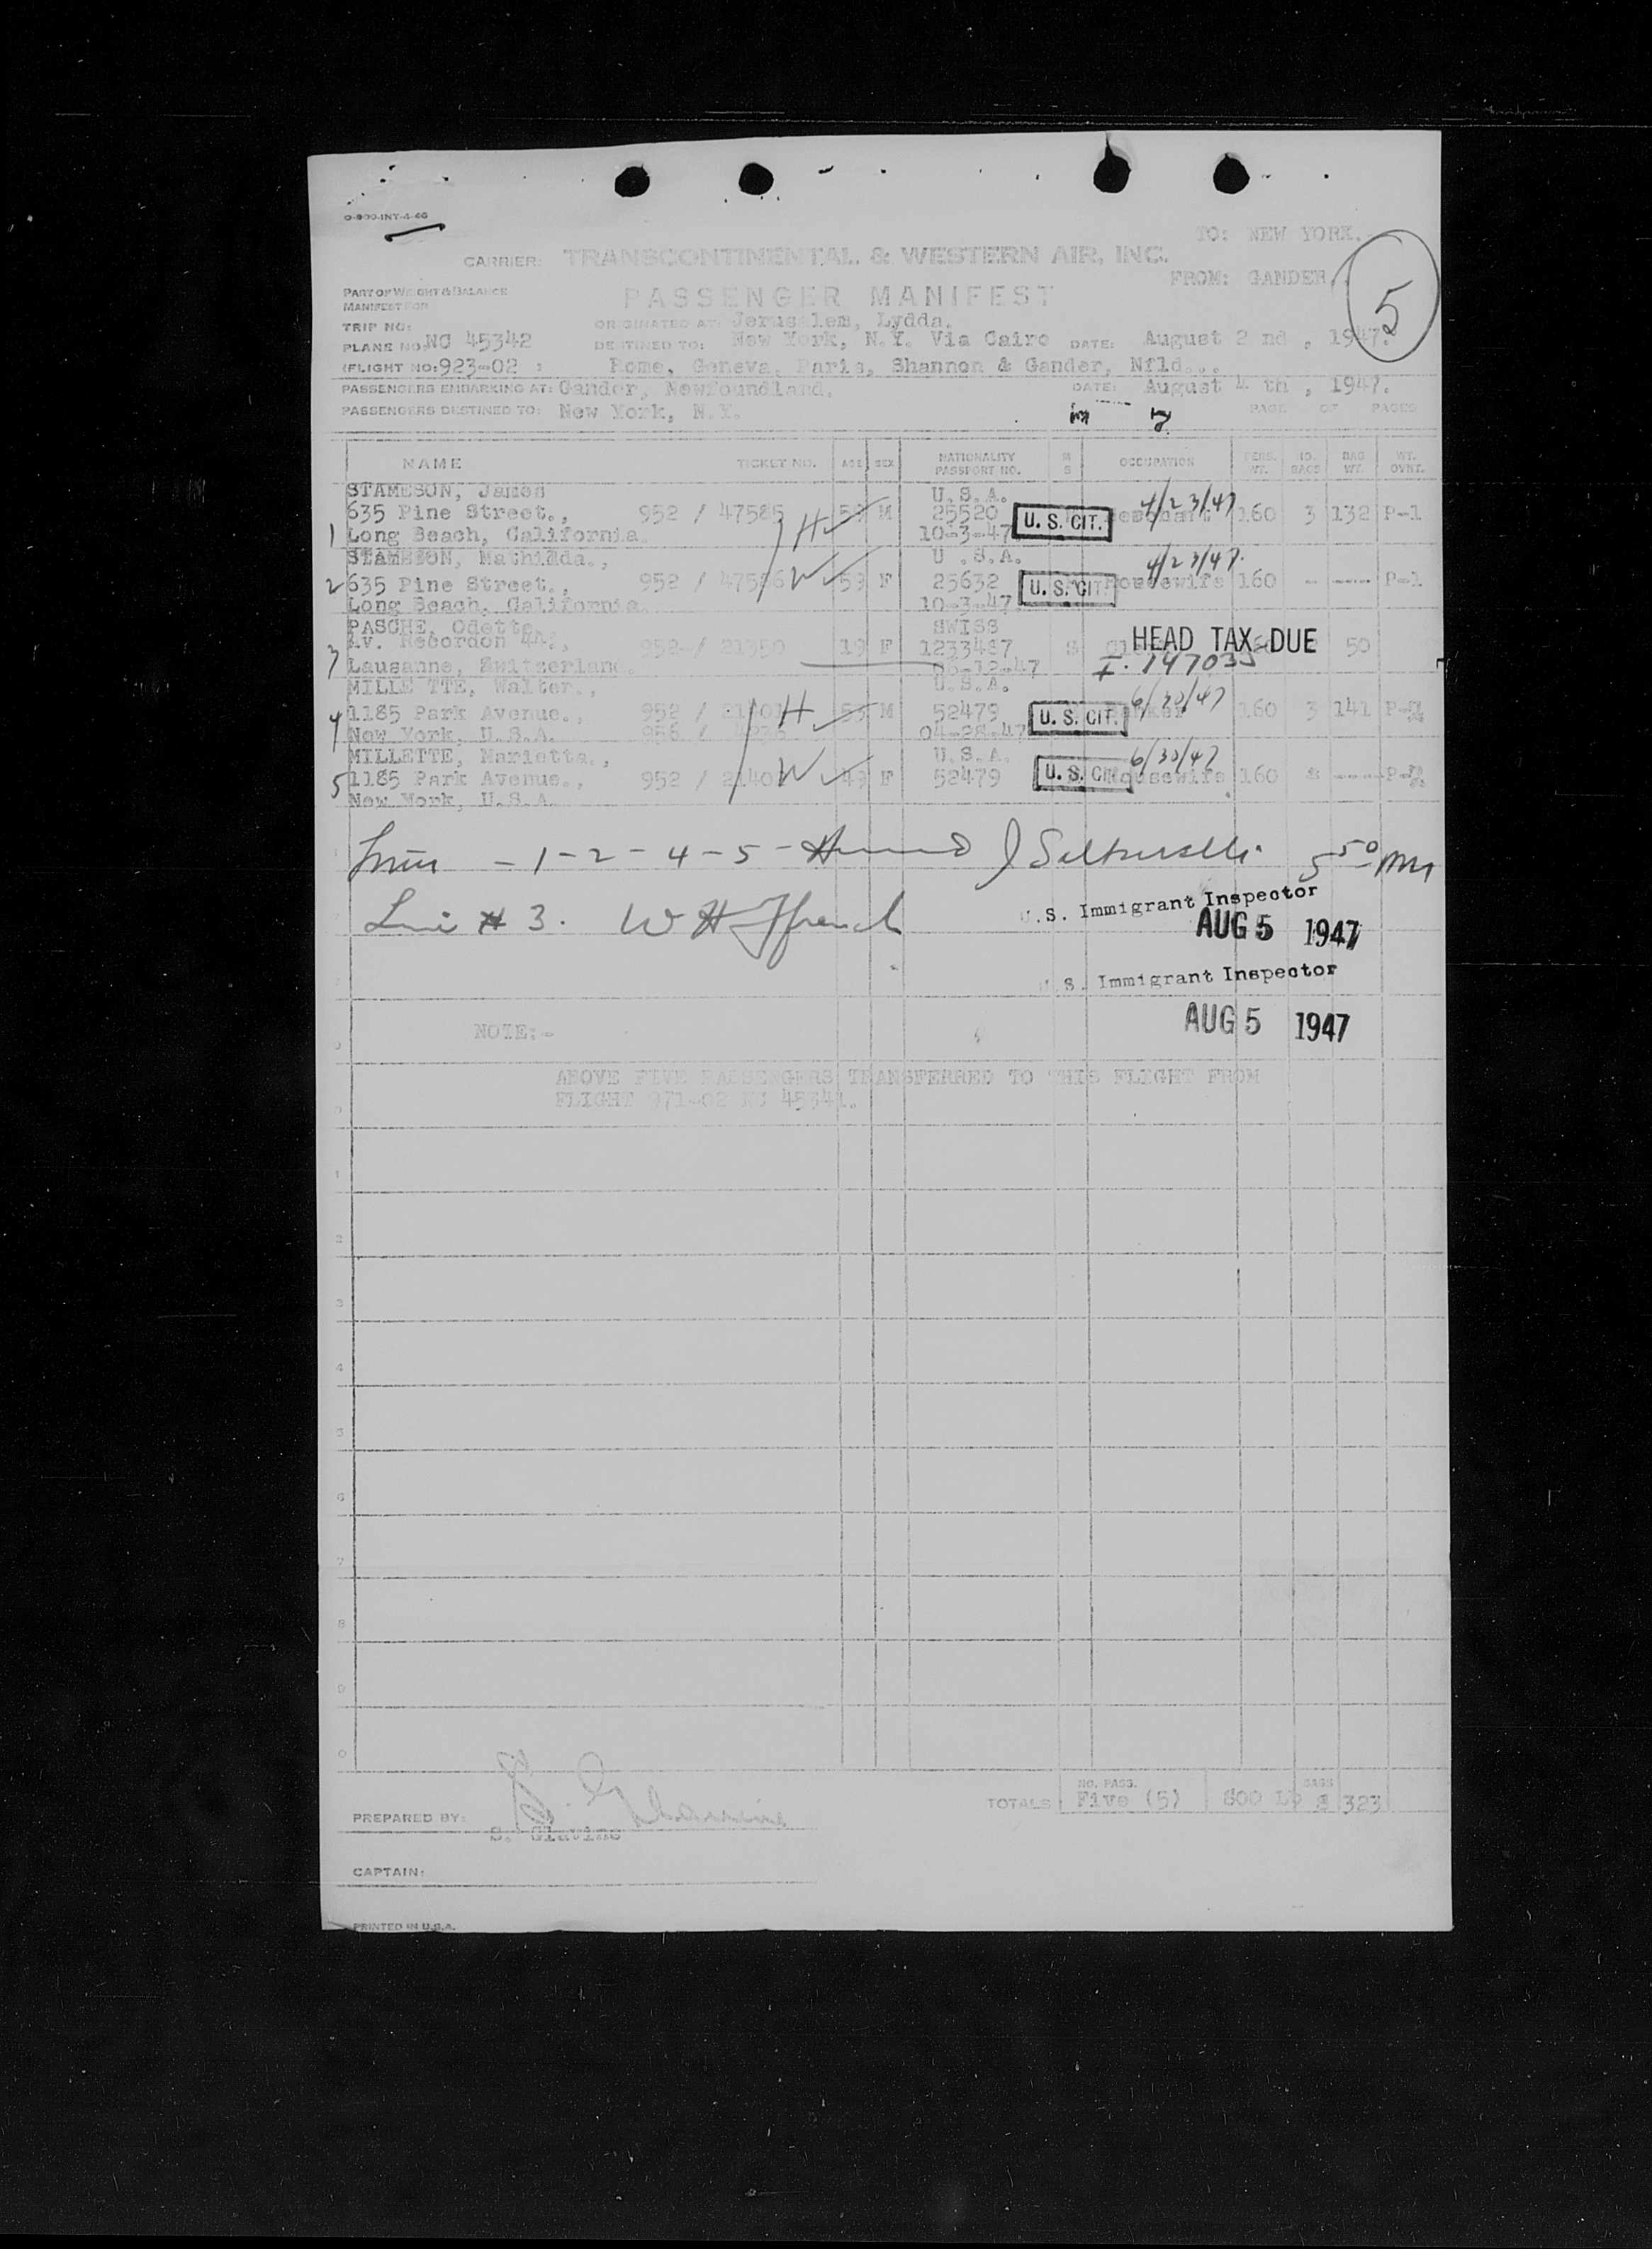 O-800-INT-4-46
TO: NEW YORK.
CARRIER: TRANSCONTINENTAL & WESTERN AIR, INC.
FROM: GANDER
5
PART OF WEIGHT & BALANCE
MANIFEST FOR
PASSENGER MANIFEST
TRIP NO:
ORIGINATED AT: Jerusalem, Lydda.
PLANE NO. NC 45342
DESTINED TO: New York, N.Y. Via Cairo DATE: August 2 nd , 1947.
(FLIGHT NO: 923-02 : Rome, Geneva, Paris, Shannon & Gander, Nfld...
PASSENGERS EMBARKING AT: Gander, Newfoundland. DATE: August 4 th , 1947.
PASSENGERS DESTINED TO: New York, N.Y. PAGE OF PAGES
NAME TICKET NO. AGE SEX NATIONALITY PASSPORT NO. M S OCCUPATION PERS. WT. NO. BAGS BAG WT. WT. OVNT.
STAMESON, James U.S.A. 4/23/47
635 Pine Street., 952 / 47585 M 25520 U. S. CIT. 160 3 132 P-1
1 Long Beach, California. H 10-3-47
STAMESON, Mathilda., U .S.A. 4/23/47
2 635 Pine Street., 952 / 47586 W 59 F 25632 U. S. CIT. Housewife 160 - ---- P-1
Long Beach, California. 10-3-47
PASCHE, Odette SWISS
Av. Recordon 4A., 952 / 21350 19 F 1233487 S HEAD TAX DUE 50
3 Lausanne, Switzerland. -12-47 I-147035
MILLE TTE, Walter., U.S.A. 6/30/47
4 1185 Park Avenue., 952 / H 53 M 52479 U. S. CIT. 160 3 141
New York, U.S.A. 956 / 04-28-47
MILLETTE, Marietta., U.S.A. 6/30/47
5 1185 Park Avenue., 952 / W 49 F 52479 U. S. CIT. Housewife 160
New York, U.S.A.
- 1 - 2 - 4 - 5 - 5 50 PM
Line # 3. W H Ffrench
U.S. Immigrant Inspector
AUG 5 1947
U. S. Immigrant Inspector
AUG 5 1947
NOTE:-
ABOVE FIVE PASSENGERS TRANSFERRED TO THIS FLIGHT FROM
FLIGHT 971-02 NC 45341.
NO. PASS. BAGS
TOTALS Five (5) 800 Lb 323
PREPARED BY:
S. Glavine
CAPTAIN:
PRINTED IN U.S.A.